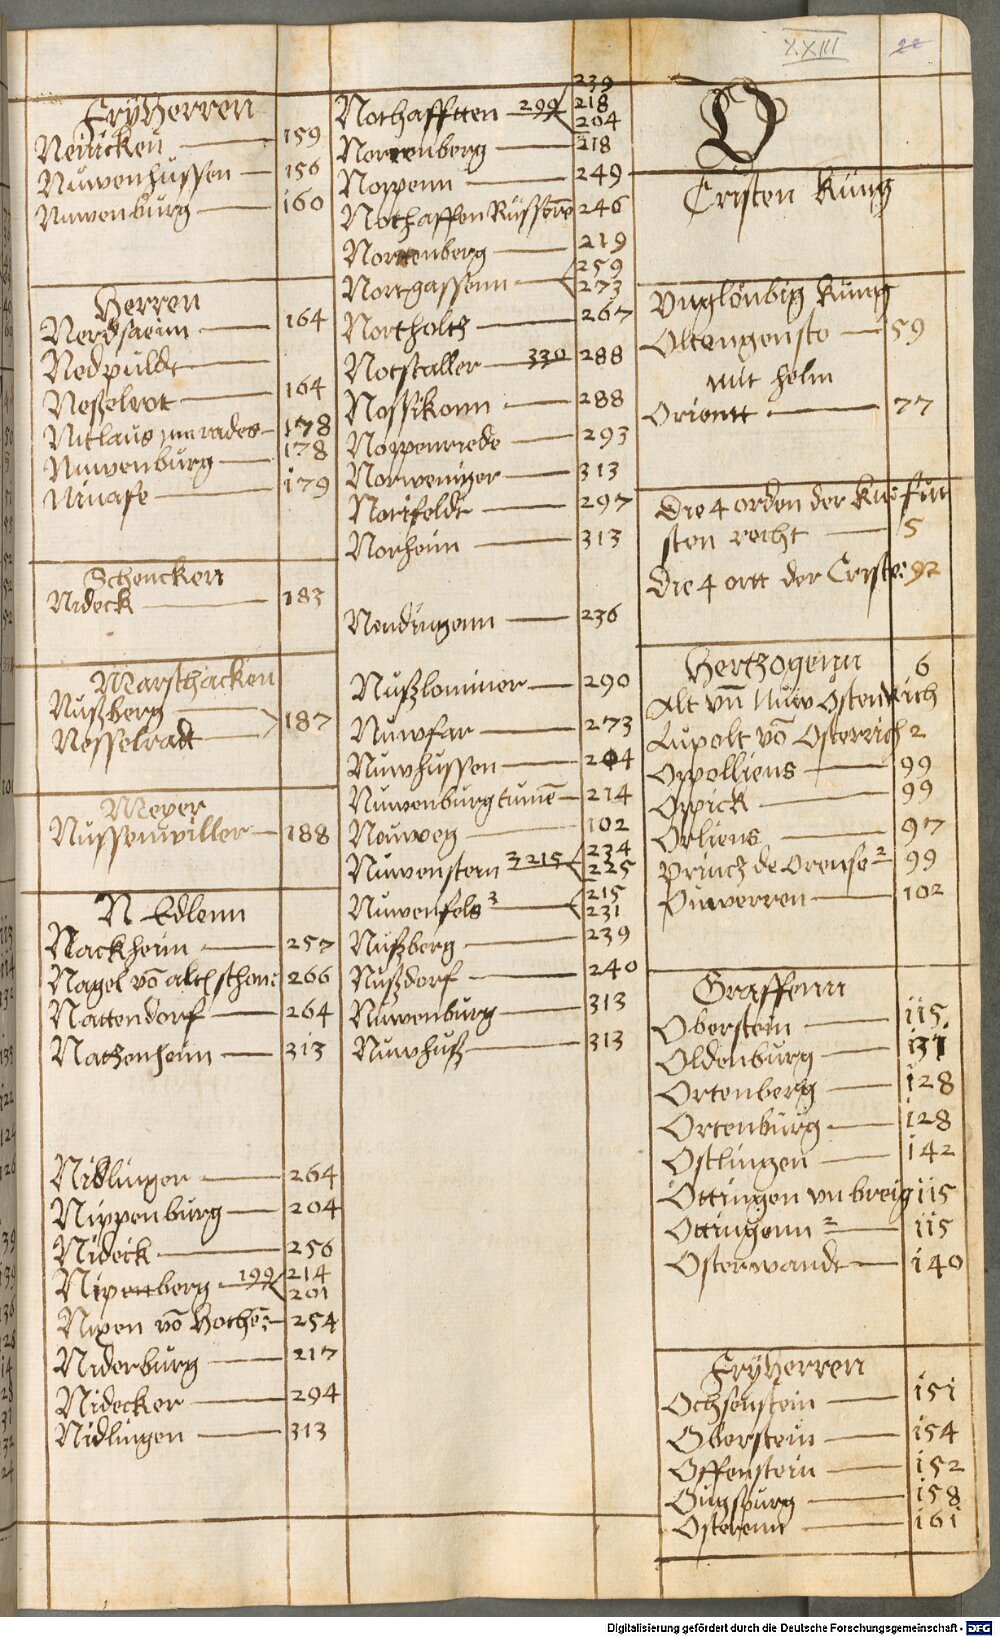 XXIII 22
Fryherren
Neiicken 159
Nuwenhussen 156
Nuwenburg 160
Herren
Nerdsaeim 164
Nedpuldt
Neßelrot 164
Nitlaus 178
Nuwenburg 178
Ninafe 179
Schencken
Nideck 183
Marschacken
Nußberg
Nesselradt 187
Meyer
Nussenwiller 188
N Edlenn
Nackheim 257
Nagel võ 266
Nattendorf 264
Nachenheim 313
Niblinger 264
Nippenburg 204
Nideck 256
Nipenberg 199 214
201
Nipen võ 254
Niderburg 217
Nidecker 294
Nidlingen 313
239
Nothafftten 299 218
204
Norrenberg 218
Noppenn 249
Nothaffen Rüssere 246
Norttenberg 219
Nortgassenn 259
273
Northoltz 267
Notstaller 330 288
Nossikonn 288
Noppenriede 293
Norweniger 313
Norifeldt 297
Norheim 313
Nendingenn 236
Nußlominer 290
Nuwfar 273
Nuwhussen 204
Nuwenburg 214
Neuweg 102
Nuwenstern 3 215 234
225
Nuwenfels 3 215
231
Nußberg 239
Nußdorf 240
Nuwenburg 313
Nuwhuß 313
O
Cristen Küng
Unglöubig Küng
Oltengensto 59
mit helm
Orientt 77
Die 4 orden der Kuefur
sten recht 5
Die 4 ortt der Criste: 92
Hertzogenn 6
Alt vnn Nuw Ostenrich
Lupolt võ Osterrich 2
Oppolliens 99
Oppick 99
Orliens 97
Princh de Orense 2 99
Ouwerren 102
Graffenn
Oberstein 115
Oldenburg 131
Ortenberg 128
Ortenburg 128
Ostlingen 142
Öttingen vn breig 115
Ottingenn 2 115
Osterwandt 140
Fryherren
Ochsenstein 151
Oberstein 154
Offenstein 152
Ougspurg 158
Osterenn 161
Digitalisierung gefördert durch die Deutsche Forschungsgemeinschaft - DFG